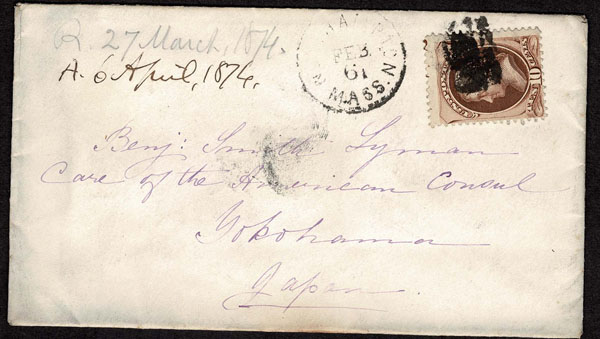 R. 27 March, 1874.
A. 6 April, 1874.
FEB
61
MASS.
Benj: Smith Lyman
Care of the American Consul
Yokohama
Japan.